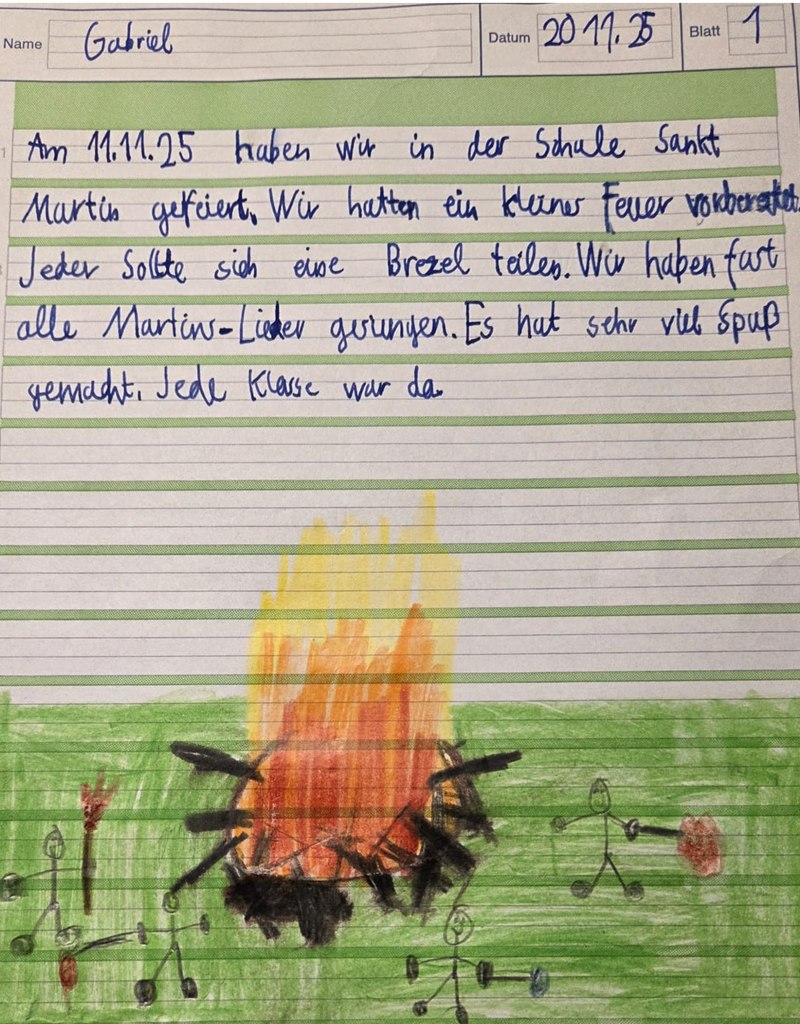 Name Gabriel Datum 20 11. 25 Blatt 1
Am 11.11.25 haben wir in der Schule Sankt
Martin gefeiert. Wir hatten ein kleines Feuer vorbereitet.
Jeder Sollte sich eine Brezel teilen. Wir haben fast
alle Martins-Lieder gesungen. Es hat sehr viel Spaß
gemacht. Jede Klasse war da.